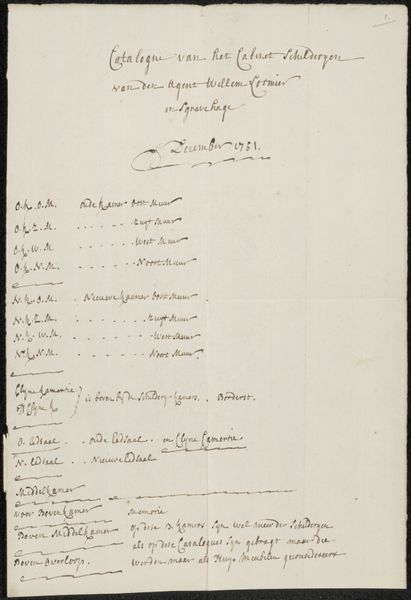 1.
Catalogue van het Cabinet Schilderyen
van den Agent Willem Lormier
in Sgravehage
December 1751.
O.K.O.M. oude Kamer Oost Muur
O.K.Z.M. . . . . . . Zuyt Muur
O.K.W.M. . . . . . . West Muur
O.K.N.M. . . . . . . Noort Muur
N.K.O.M. . Nieuwe Kaamer Oost Muur
N.K.Z.M. . . . . . . Zuyt Muur
N.K.W.M. . . . . . . West Muur
N.K.N.M. . . . . . . Noort Muur.
Clyne Kamertie
off Clyne K. } is boven bij de Schildery-Kamers.
O. Eedsaal . . Oude Eedsaal . en Clyne Camertie
N. Eedsaal . . Nieuwe Eedsaal
Middelkamer
Voor Bovenkamer Memorie
Boven Middelkamer op dese 3 kamers syn wel meer der Schilderyen
als op dese Catalogus syn gebragt maar die
Boven Overloop. werden maar als Huys Meubilen geconsidereert